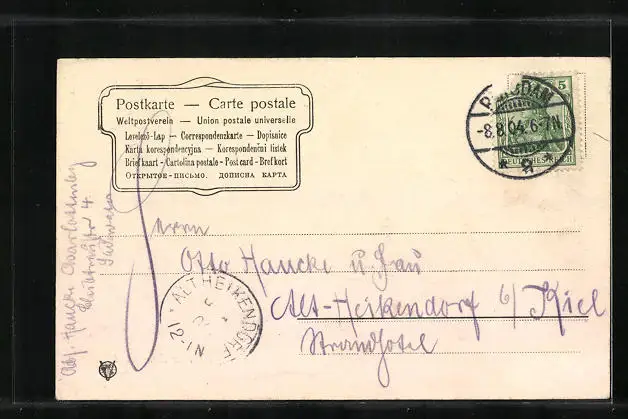 Postkarte — Carte postale
Weltpostverein — Union postale universelle
Levelező-Lap — Correspondenzkarte — Dopisnice
Karta korespondencyjna — Korespondenčni listek
Briefkaart - Cartolina postale - Post card - Brefkort
Открытое-письмо. дописна карта
POTSDAM
-8.8.04.6-7N.
5
DEUTSCHES REICH
Herrn
Otto Haucke u Frau
Alt-Heikendorf b/Kiel
Strandhotel
ALT HEIKENDORF
12-1N
Abs. Haucke Charlottenbg
4.